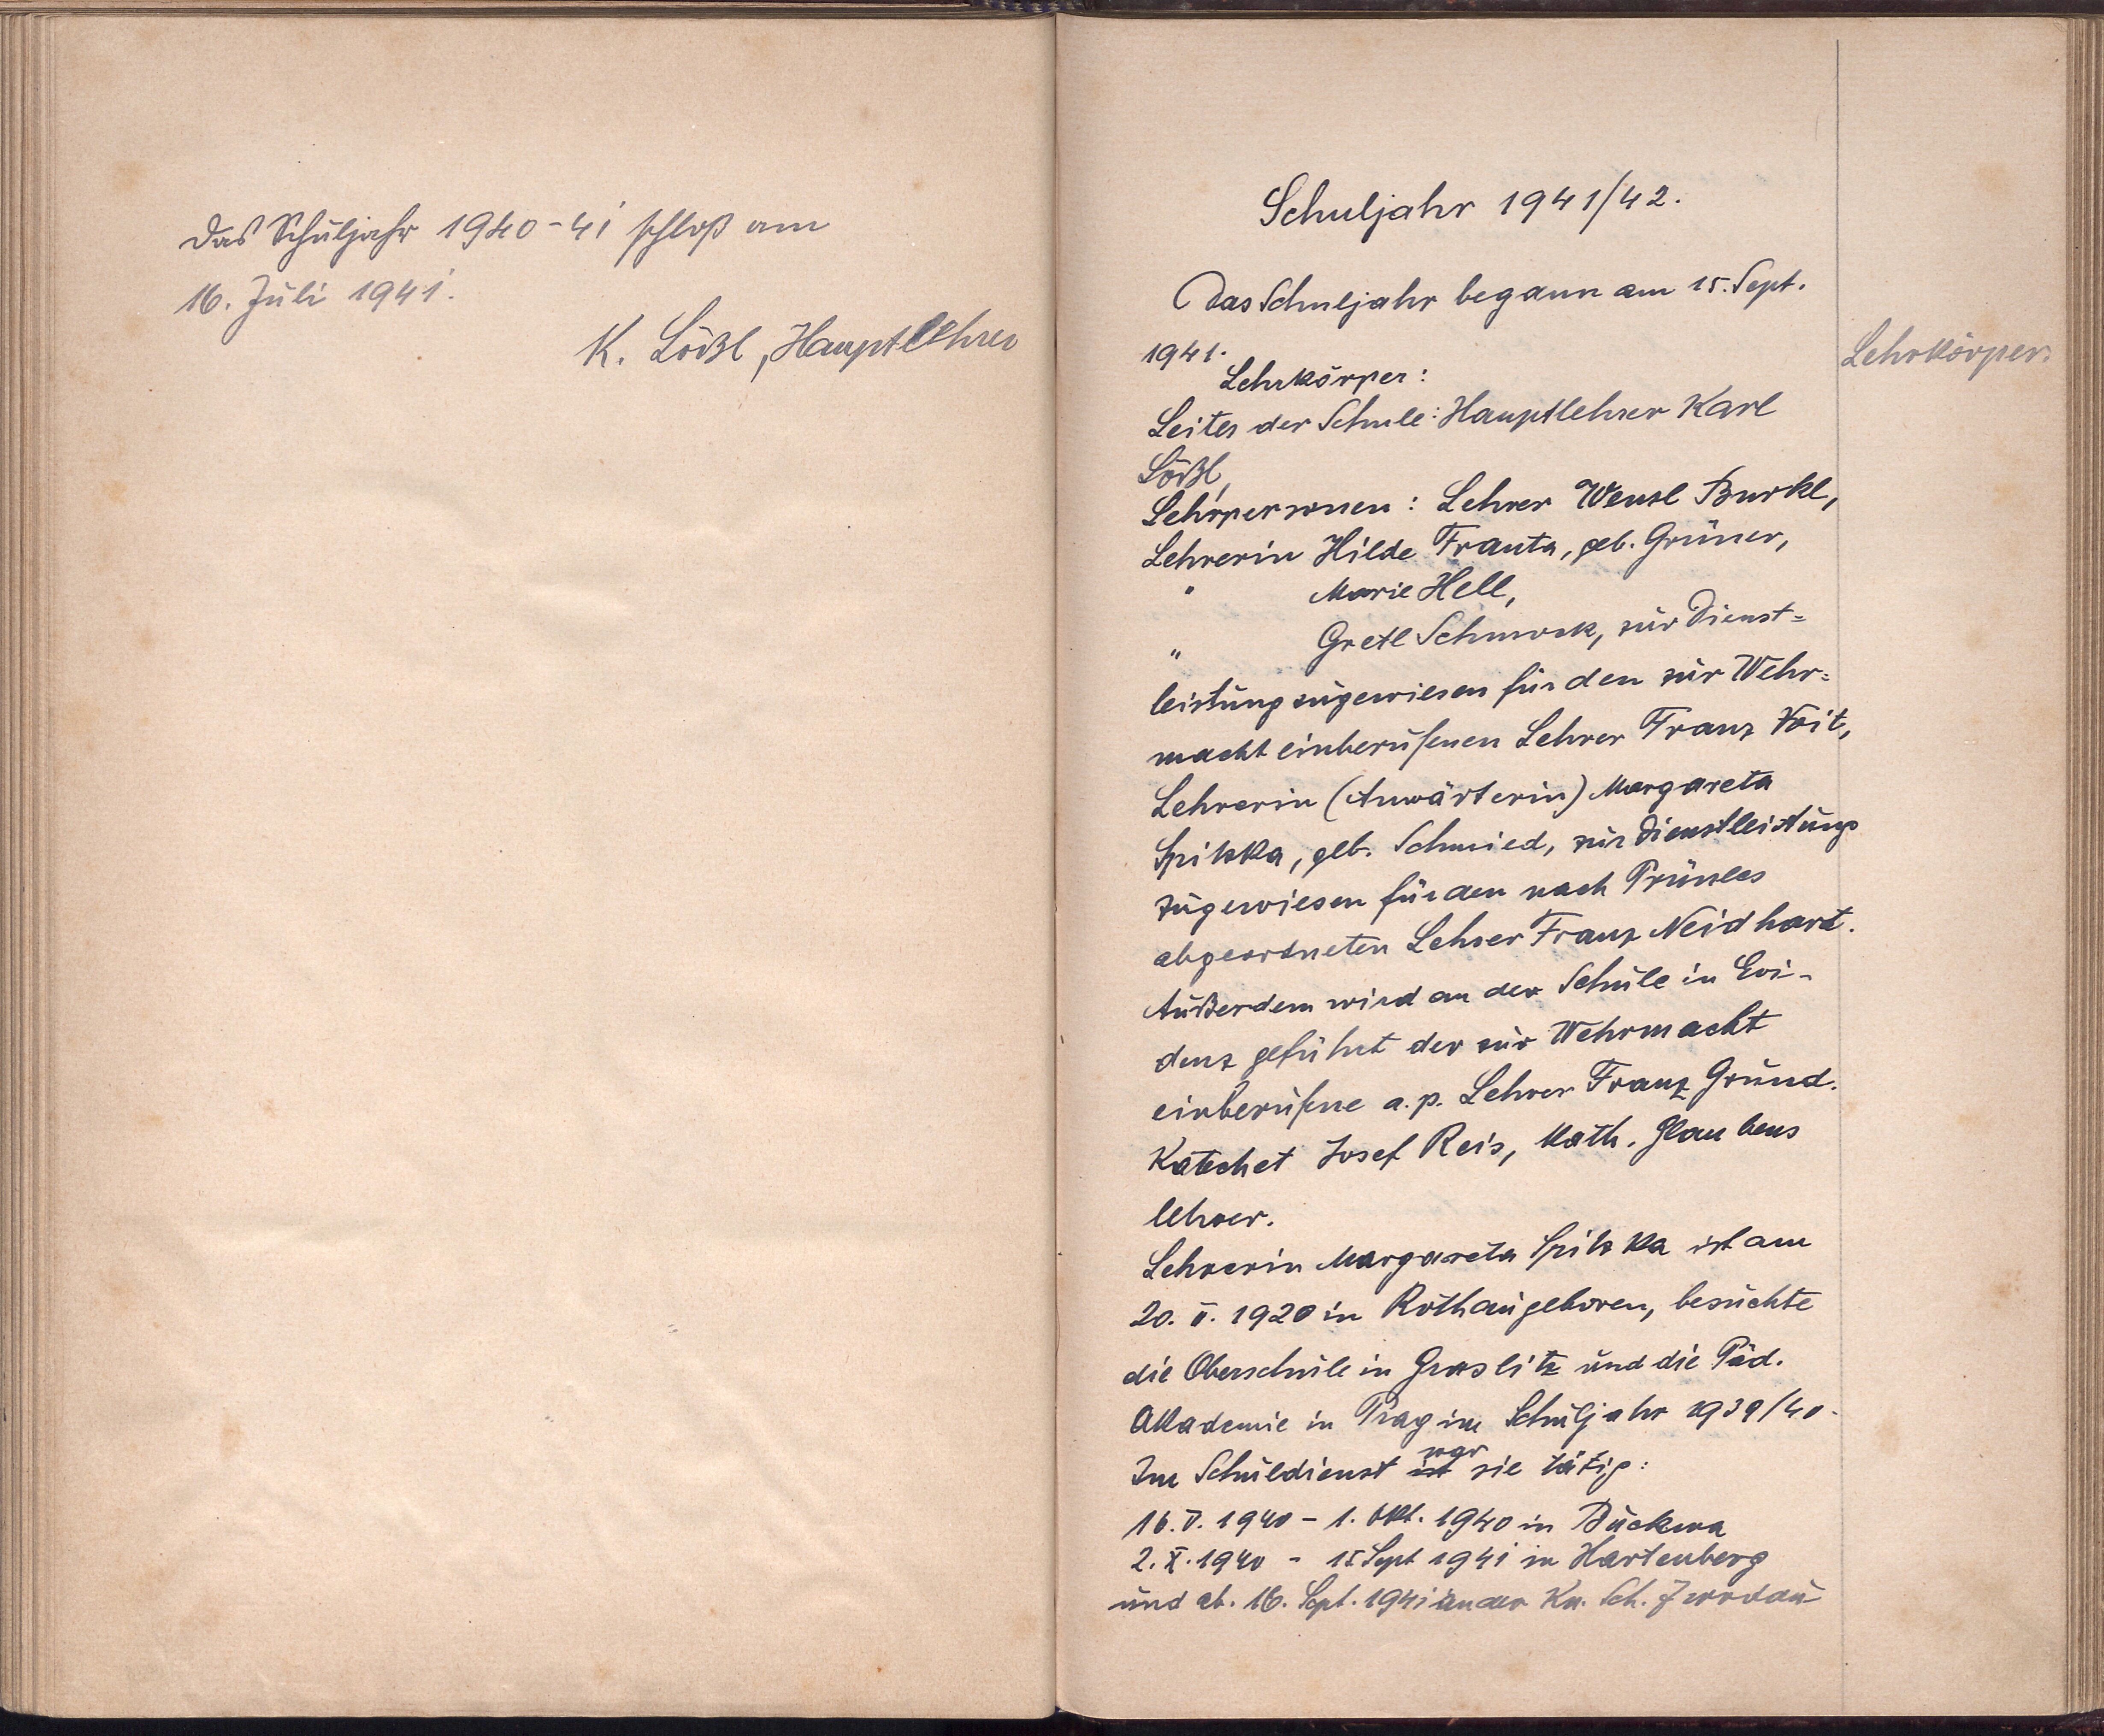 Das Schuljahr 1940-41 schloß am
16. Juli 1941.
K. Lößl, Hauptlehrer
Schuljahr 1941/42.
Das Schuljahr begann am 15. Sept.
1941.
Lehrkörper.
Lehrkörper:
Leiter der Schule: Hauptlehrer Karl
Lößl,
Lehrpersonen: Lehrer Wenzl Burkl,
Lehrerin Hilde Franta, geb. Grüner,
" Marie Hell,
" Gretl Schmock, zur Dienst=
leistung zugewiesen für den zur Wehr=
macht einberufenen Lehrer Franz Voit,
Lehrerin (Anwärterin) Margareta
Spitzka, geb. Schmied, zur Dienstleistung
zugewiesen für den nach Prünles
abgeordneten Lehrer Franz Neidhart.
Außerdem wird an der Schule in Evi-
denz geführt der zur Wehrmacht
einberufene a.p. Lehrer Franz Grund.
Katechet Josef Reis, kath. Glaubens
lehrer.
Lehrerin Margareta Spitzka ist am
20. II. 1920 in Rothau geboren, besuchte
die Oberschule in Graslitz und die Päd.
Akademie in Prag im Schuljahr 1939/40.
Im Schuldienst ist war sie tätig:
16. V. 1940 - 1. Okt. 1940 in Buckwa
2. X. 1940 - 15 Sept 1941 in Hartenberg
und ab. 16. Sept. 1941 an der Kn. Sch. Zwodau